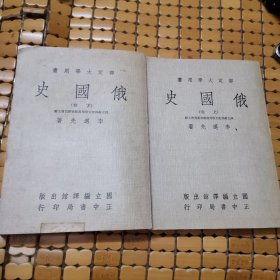 部定大學用書
俄國史
李邁先著
國立編譯館出版
正中書局印行
部定大學用書
俄國史
李邁先著
國立編譯館出版
正中書局印行